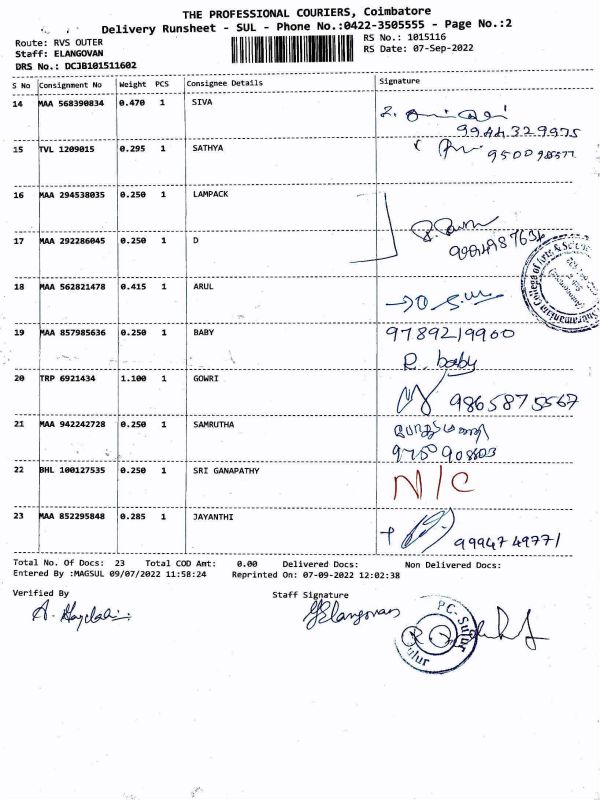 THE PROFESSIONAL COURIERS, Coimbatore
Delivery Runsheet - SUL - Phone No.:0422-3505555 - Page No.:2
Route: RVS OUTER
Staff: ELANGOVAN
DRS No.: DCJB101511602
RS No.: 1015116
RS Date: 07-Sep-2022
S No Consignment No Weight PCS Consignee Details Signature
14 MAA 568390834 0.470 1 SIVA
9944329975
15 TVL 1209015 0.295 1 SATHYA
16 MAA 294538035 0.250 1 LAMPACK
17 MAA 292286045 0.250 1 D
18 MAA 562821478 0.415 1 ARUL
19 MAA 857985636 0.250 1 BABY 9789219960
R. baby
20 TRP 6921434 1.100 1 GOWRI 9865875567
21 MAA 942242728 0.250 1 SAMRUTHA
22 BHL 100127535 0.250 1 SRI GANAPATHY N/C
23 MAA 852295848 0.285 1 JAYANTHI 9994749771
Total No. Of Docs: 23 Total COD Amt: 0.00 Delivered Docs: Non Delivered Docs:
Entered By :MAGSUL 09/07/2022 11:58:24 Reprinted On: 07-09-2022 12:02:38
Verified By Staff Signature
Elangovan
P.C. Sulur
Sulur